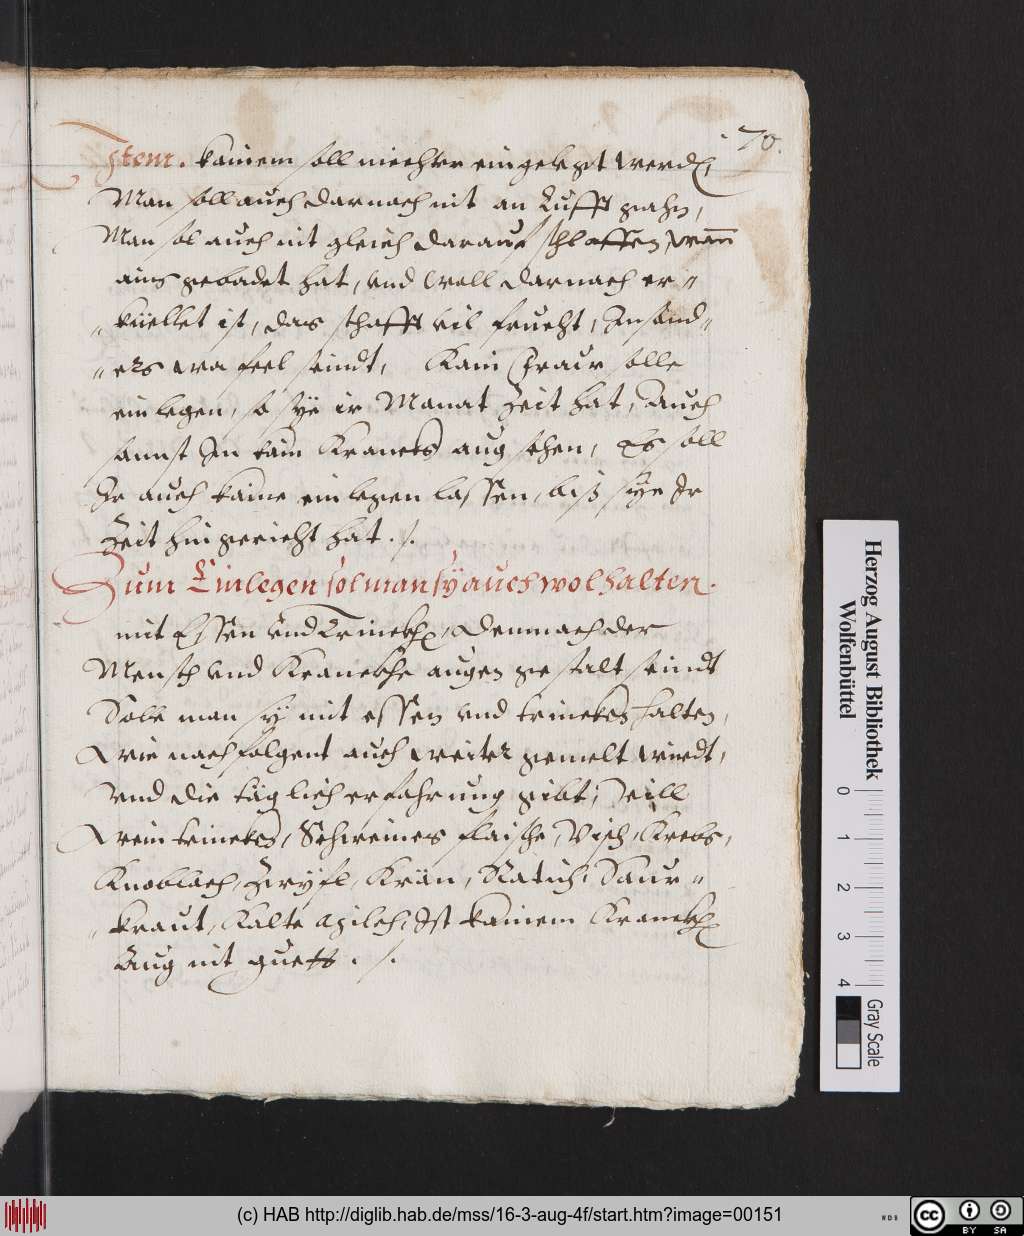 70.
Item. kainem soll niechter eingelegt werden,
Man soll auch darnach nit an Lufft gahn,
Man sol auch nit gleich darauf schlaffen, wan
ains gebadet hat, und woll darnach er=
=küellet ist, das schafft vil feucht,
=ers wa feel seindt, Kain Fraw solle
einlegen, so sye ir Monat Zeit hat, Auch
sonnst In kain Kranckes aug sehen, Es soll
Ir auch kaine einlegen lassen, biß sye Ir
Zeit hingericht hat. /.
Zum Einlegen sol man sy auch wol halten.
mit Essen und Trinckhen, demnach der
Mensch und Kranckhe augen gestalt seindt
Solle man sy mit essen und trinckhen halten,
Wie nachfolgent auch weiter gemelt wirdt,
und die täglich erfahrung gibt; Vill
Wein trinckhen, Schweines flaische, Visch, Krebs,
Knoblach, Zwyfl, Krän, Ratich, Saur=
=kraut, Kalte Milch, Ist kainem Kranckhen
Aug nit guett. /.
Herzog August Bibliothek
Wolfenbüttel
0 1 2 3 4
Gray Scale
(c) HAB http://diglib.hab.de/mss/16-3-aug-4f/start.htm?image=00151
WDB
cc BY SA